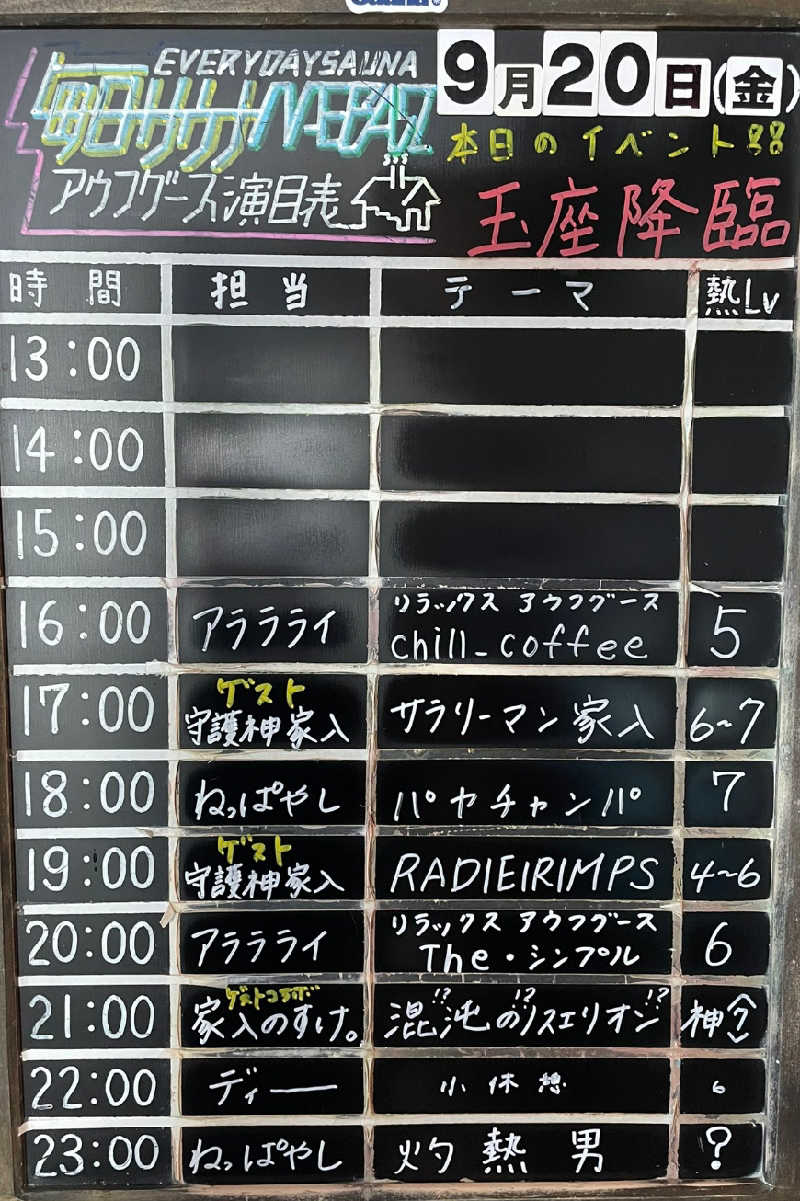 EVERYDAYSAUNA
毎日サウナ MAEBASHI
9月20日(金)
本日のイベント
アウフグース演目表
玉座降臨
時間 担当 テーマ 熱Lv
13:00
14:00
15:00
リラックス アウフグース
16:00 アラララライ chill_coffee 5
ゲスト
17:00 守護神家入 サラリーマン家入 6~7
18:00 ねっぱやし パヤチャンパ 7
ゲスト
19:00 守護神家入 RADIEIRIMPS 4~6
リラックス アウフグース
20:00 アララライ The・シンプル 6
ゲストコラボ
21:00 家入のすけ。 混沌のノスエリオン 神^?
!? !? !?
22:00 ディー 小休憩 6
23:00 ねっぱやし 灼熱男 ?